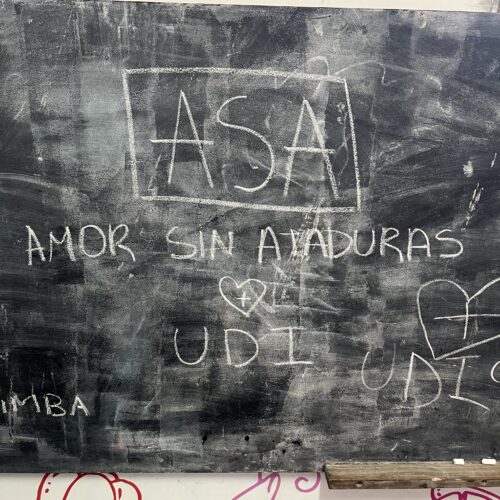 ASA
AMOR SIN ATADURAS
UDI
UDI